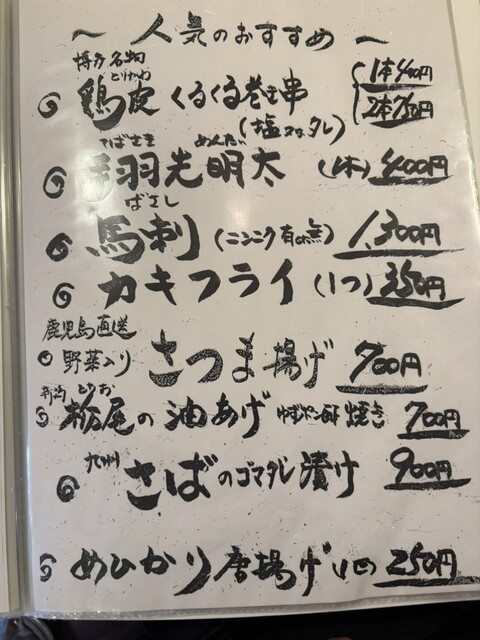 ～ 人気のおすすめ ～
博多名物
とりかわ
鶏皮 くるくる巻き串 1本400円
(塩又はタレ) 2本750円
てばさき めんたい
手羽先明太 (1本) 400円
ばさし
馬刺 (ニンニク有or無) 1,300円
カキフライ (1つ) 350円
鹿児島直送
野菜入り さつま揚げ 700円
とちお
栃尾の油あげ ゆずポン酢焼き 700円
九州 さばのゴマダレ漬け 900円
めひかり唐揚げ 250円